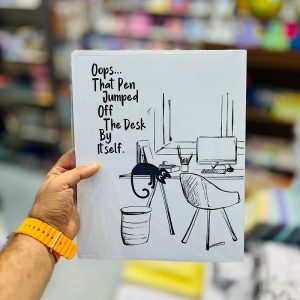 Oops...
That Pen
Jumped
Off
The Desk
By
Itself.